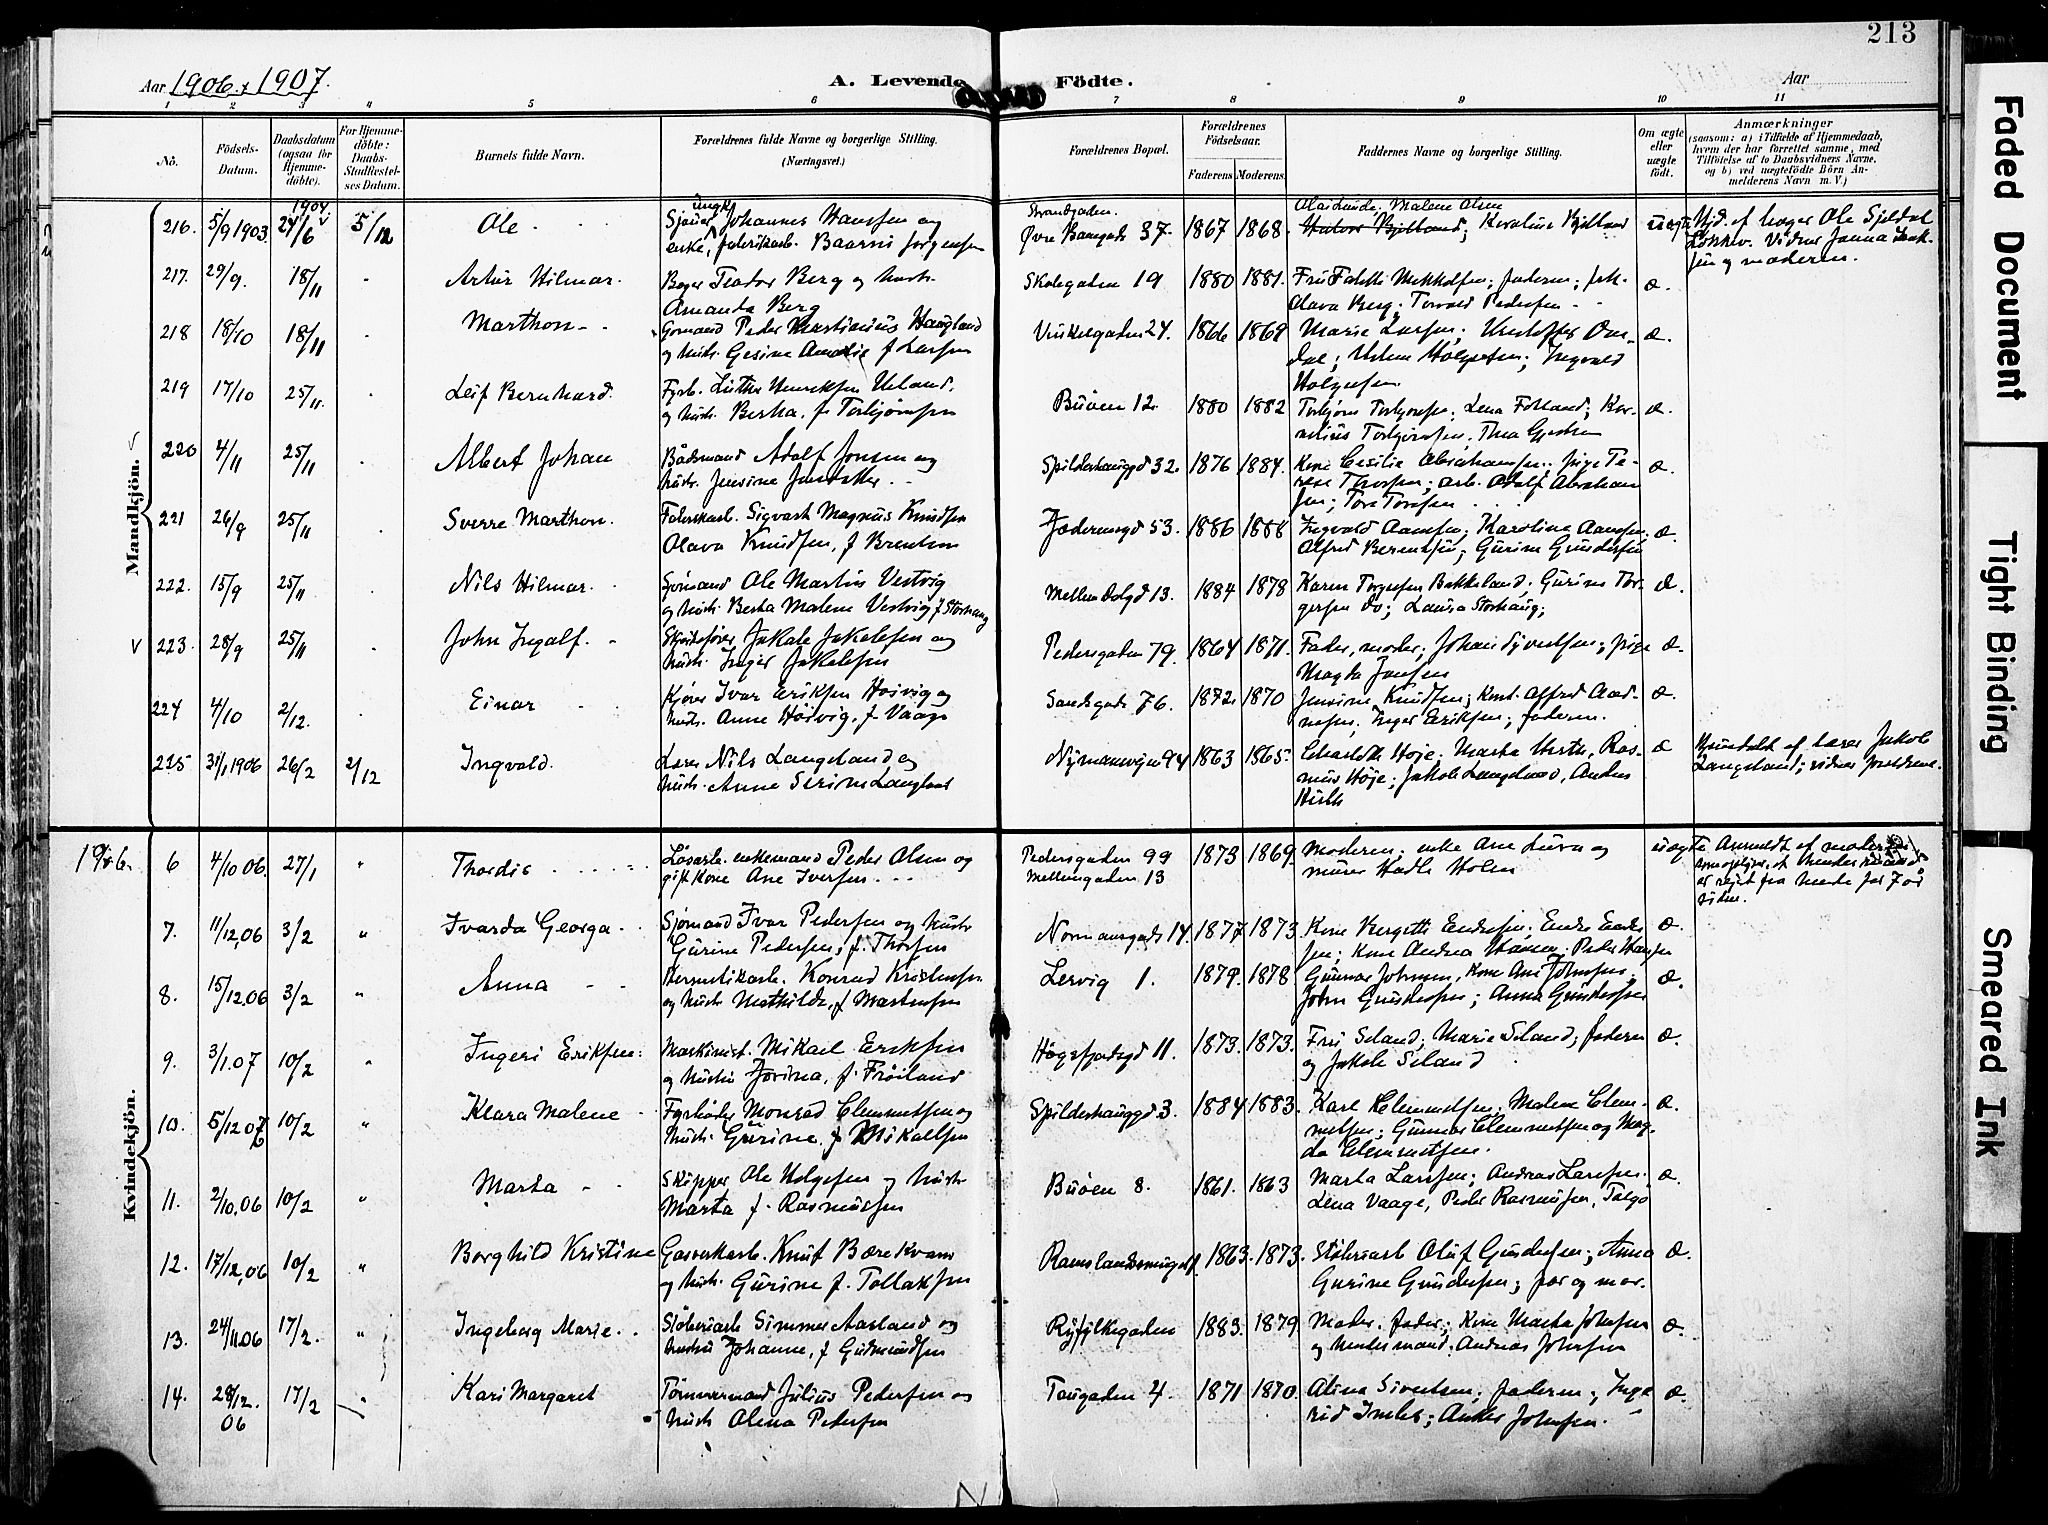 213
Aar 1906 & 1907.
A. Levende Födte.
Aar
1 2 3 4 5 6 7 8 9 10 11
No.
Födsels-Datum.
Daabsdatum (ogsaa for Hjemme-döbte).
For Hjemme-döbte: Daabs-Stadfæstel-ses Datum.
Barnets fulde Navn.
Forældrenes fulde Navne og borgerlige Stilling. (Næringsvei.)
Forældrenes Bopæl.
Forældrenes Födselsaar.
Faderens. Moderens.
Faddernes Navne og borgerlige Stilling.
Om ægte eller uægte födt.
Anmærkninger
(saasom: a) i Tilfælde af Hjemmedaab, hvem der har forrettet samme, med Tilföielse af to Daabsvidners Navne, og b) ved uægtefödte Börn An-melderens Navn m. V.)
Mandkjön.
216. 5/9 1903. 1904 24/6 5/12 Ole
Sjauer, ungk. Johannes Hanssen og
enke, fabrikarb.
Strandgaden.
Øvre Banegade 37. 1867 1868.
Malene Olsen
uægte
217. 29/9. 18/11 Artur Hilmar.
Bager Teodor Berg og hustr.
Amanda Berg
Skolegaden 19 1880 1881.
Olava Berg; Torvald Pedersen
æ.
218 18/10 18/11 Marthon
Peder Martinius Haagland
og hustr. Gesine Amalie f. Larsen
Vinkelgaden 24. 1866 1869
Marie Larsen; Kristoffer Om-
dal; Helene Holgersen; Ingvald
Holgersen
æ.
219 17/10 25/11. Leif Bernhard.
Fyrb. Luther Henriksen Ueland.
og hustr. Berta, f. Torbjørnsen
Buøen 12. 1880 1882
Torbjørn Torbjørnsen; Lena Folland; Kor-
nelius Torbjørnsen
æ.
220 4/11 25/11 Albert Johan
Baadsmand Adolf Jonsen og
hustr. Jensine
Spilderhauggd 32. 1876 1884.
Kone Cecilie Abrahamsen; pige Te-
rese Thorsen; arb. Adolf Abraham
sen; Tore Toresen
æ.
221 26/9 25/11 Sverre Marthon.
Fabrikarb. Sigvart Magnus Knudsen
Olava Knudsen, f. Berentsen
Jæderensgd 53. 1886 1888
Ingvald Aanensen; Karoline Aanensen;
Alfred Berentsen; Gurine Gundersen
æ.
222. 15/9 25/11 Nils Hilmar.
Sjømand Ole Martin Vestvig
og hustr. Berta Malene Vestvig f. Storhaug
Mellem Dalgd 13. 1884 1878
Karen Torgersen Bakkeland; Gurine Tor-
gersen do; Laura Storhaug;
æ.
223. 28/9 25/11 John Ingolf.
Skibsfører Jakob Jakobsen og
hustr. Inger Jakobsen
Pedersgaden 79. 1864 1871.
Fader, moder; Johan Syvertsen; pige
Magda Jansen
æ.
224 4/10 2/12. Einar
Kjører Ivar Eriksen Høivig og
hustr. Anne Høivig, f. Vaage
Sandsgade 76. 1872. 1870
Jensine Knudsen; Kont. Alfred Aad-
nesen; Inger Eriksen; faderen.
æ.
225 31/1 1906 26/2 2/12 Ingvald.
Lærer Nils Langeland, og
hustr. Anne Serine Langeland
Nymansveien 94 1863 1865.
Charlotte Høje; Marta Hirth, Ras-
mus Høje; Jakob Langeland, Anders
Hirth
æ
af lærer Jakob
Langeland; vidner forældrene.
1906.
Kvindekjön.
6 4/10 06. 27/1 " Thordis
Løsarb. enkemand Peder Olsen og
gift Kone Ane Iversen.
Pedersgaden 99
Mellemgaden 13 1873 1869.
Moderen; enke Ane Lura og
murer Kadle Holen
uægte
Anmeldt af moderen
er reist fra hende for 7 år
siden.
7. 11/12.06 3/2 " Ivarda Georga
Sjømand Ivar Pedersen og hustr
Gurine Pedersen, f. Thorsen
Normansgade 14. 1877 1873
Kone Bergette Endresen; Endre Endre
sen; Kone Andrea Hansen; Peder Hansen
æ.
8. 15/12.06 3/2 " Anna
Hermetikarb. Konrad Kristensen
og hustr. Mathilde, f. Martensen
Lervig 1. 1879. 1878
Gunnar Johnsen, Kone Ane Johnsen;
John Gundersen; Anna Gundersen
æ.
9. 3/1.07 10/2 " Ingeri Eriksen
Maskinist. Mikael Eriksen
og hustru Jorina, f. Frøiland
Høgsfjordgd 11. 1873. 1873.
Fru Seland; Marie Seland; faderen
og Jakob Seland
æ.
10. 5/12 06 10/2 " Klara Malene
Fyrbøder Monrad Clemmetsen og
hustr. Gurine f. Mikaelsen
Spilderhauggd 3. 1884 1883.
Karl Clemmetsen; Malene Clem-
metsen; Gunnar Clemmetsen og Mag-
da Clemmetsen.
æ.
11. 2/10.06 10/2 " Marta
Skipper Ole Helgesen og hustr
Marta f. Rasmussen
Buøen 8. 1861. 1863
Marta Larssen; Andreas Larssen.
Lena Vaage, Peder Rasmussen, Talgø
æ.
12. 17/12.06 10/2 " Borghild Kristine
Gasverkarb. Knut Bærekvam
og hustr. Gurine f. Tollaksen
1863. 1873.
Støberiarb Oluf Gundersen; Anna
Gurine Gundersen; far og mor.
æ.
13. 24/11.06 17/2. " Ingeborg Marie.
Støberiarb Simmer Aarland og
hustru Johanne, f. Gudmundsen
Ryfylkegaden 1883. 1879
Moder. fader; Kone Marta Johnsen
og hendes mand. Andreas Johnsen
æ.
14. 28/12. 06 17/2 " Kari Margaret
Tømmermand Julius Pedersen og
hustr Alena Pedersen
Taugaden 4. 1871 1870.
Alina Sivertsen; faderen; Inge
rid Imbs; Anker Johnsen.
æ.
Faded Document
Tight Binding
Smeared Ink